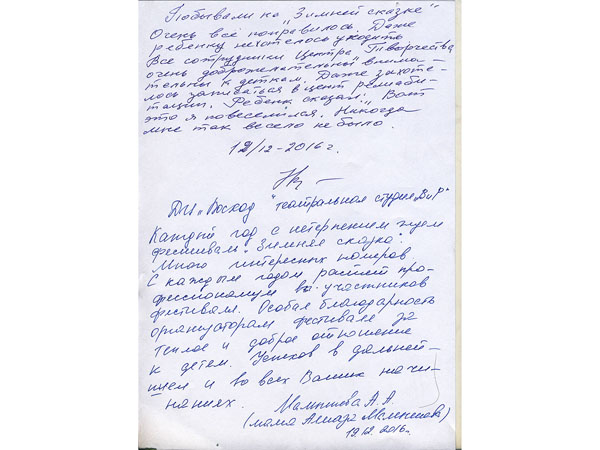 Побывали на "Зимней сказке"
Очень всё понравилось. Даже
ребенку не хотелось уходить
Все сотрудники Центра Творчества
очень доброжелательны внима-
тельны к деткам. Даже захоте-
лось записаться в центр реабили-
тации. Ребенк сказал: "Вот
это я повеселился. Никогда
мне так весело не было.
19/12-2016 г.
"Восход" театральная студия
Каждый год с нетерпением ждем
фестиваль "Зимняя сказка".
Много интересных номеров
С каждым годом растет про-
фессионализм участников
фестиваля. Особая благодарность
организаторам фестиваля за
теплое и доброе отношение
к детем. Успехов в дальней-
шем и во всех Ваших начи-
наниях.
А.А.
(мама
19.12.2016г.